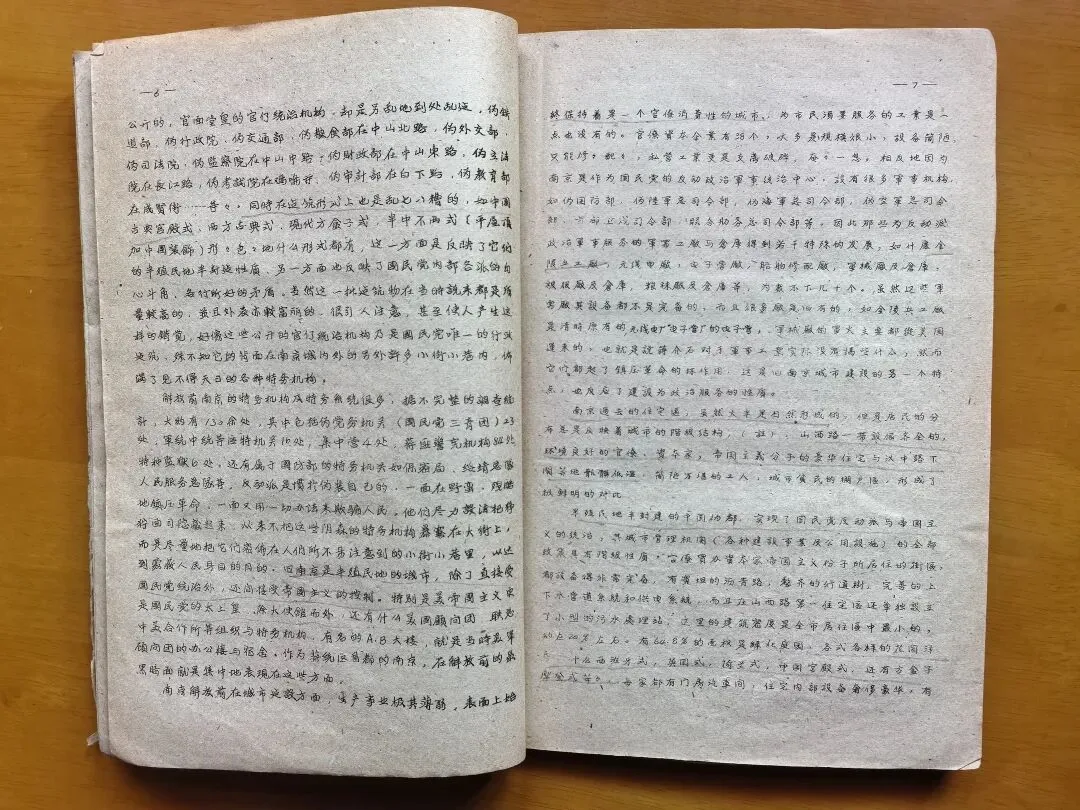 —6—
公开的，官面堂皇的官行统治机构，却是另乱地到处乱设，伪铁
道部、伪行政院、伪交通部、伪粮食部在中山北路，伪外交部、
伪司法院、伪监察院在中山中路；伪财政部在中山东路，伪立法
院在长江路，伪考试院在鸡鸣寺、伪审计部在白下路，伪教育部
在成贤街——等々，同时在建筑形式上也是乱七八糟的，如中国
古典宫殿式，西方古典式，现代方盒子式，半中不西式（平屋顶
加中国装饰）形々色々地什么形式都有，这一方面是反映了它们
的半殖民地半封建性质，另一方面也反映了国民党内部各派的勾
心斗角、各行所好的矛盾。当然这一批建筑物在当时说来都是质
量较高的，并且外表亦较富丽的，很引人注意，甚至使人产生这
样的错觉，好像这些公开的官行统治机构乃是国民党唯一的行政
建筑，殊不知它的背面在南京城内外的另外许多小街小巷内，佈
满了见不得天日的各种特务机构。
解放前南京的特务机构及特务系统很多，据不完整的调查统
计，大约有130余处，其中包括伪党务机关（国民党三青团）23
处，军统中统等座特机关10处，集中营4处，蒋庭警宪机构
特种监狱6处，还有属于国防部的特务机关如保密局、绥靖总队
人民服务总队等。反动派是惯于伪装自己的，一面在野蛮、残酷
地镇压革命，一面又用一切办法来欺骗人民。他们尽力设法把狰
狞面目隐藏起来，从来不把这些阴森的特务机构暴露在大街上，
而是尽量地把它们密佈在人们所不易注意到的小街小巷里，以达
到蒙蔽人民耳目的目的。但南京是半殖民地的城市，除了直接受
国民党统治外，还间接受帝国主义的控制。特别是美帝国主义更
是国民党的太上皇，除大使馆而外，还有什么美国顾问团，联勤
中美合作所等组织与特务机构，有名的A.B大楼，就是当时美军
顾问团的办公楼与宿舍。作为蒋统区首都的南京，在解放前的最
黑暗面就是集中地表现在这些方面。
南京解放前在城市建设方面，生产事业极其薄弱，表面上始
—7—
终保持着是一个官僚消费性的城市，为市民消费服务的工业是一
点也没有的。官僚资本企业有35个，大多是规模很小，设备简陋
只能修々配々，私营工业更是支离破碎，奄々一息，相反地因为
南京是作为国民党的反动政治军事统治中心，设有很多军事机构
如伪国防部，伪陆军总司令部，伪海军总司令部，伪空军总司令
部，卫戍司令部，联合勤务总司令部等，因此那些为反动派
政治军事服务的军需工厂与仓库得到若干特殊的发展，如什么金
陵兵工厂，无线电厂，电子管厂，船舶修配厂，军械厂及仓库，
被服厂及仓库，等，为数不下几十个。虽然这些军
需厂其设备都不是完备的，而且很多厂是旧有的，如金陵兵工厂
是清时原有的无线电厂电子管厂的电子管，军械厂的重大主要都从美国
运来的，也就是说蒋介石对于军事工业实际没有搞些什么，然而
它们都起了镇压革命的坏作用，这是旧南京城市建设的另一个特
点，也反应了建设为政治服务的性质。
南京过去的住宅区，虽然大半是自然形成的，但其居民的分
布总是反映着城市的阶级结构，（註）：山西路一带设备齐全的，
环境良好的官僚、资本家、帝国主义分子的豪华住宅与汉中路下
关等地散乱低洼、简陋万谨的工人、城市贫民的棚户区，形成了
极鲜明的对比
半殖民地半封建的中国伪都，实现了国民党反动派与帝国主
义的统治，其城市管理机关（各种建设事业及公用设施）的全部
政策具有阶级性质，官僚买办资本家帝国主义份子所居住的街区，
都设备得非常完备，有宽坦的沥青路，整齐的行道树，完善的上
下水管道系统和供电系统，而且在山西路第一住宅区还单独设立
了小型的污水处理站，这里的建筑密度是全市居住区中最小的，
约占20%左右。有64.8%的面积是绿化庭园，各式各样的花园洋
房，什么西班牙式，英国式，法兰式，中国宫殿式，还有方盒子
摩登式等。每家都有门房汽车间，住宅内部设备奢侈豪华，有